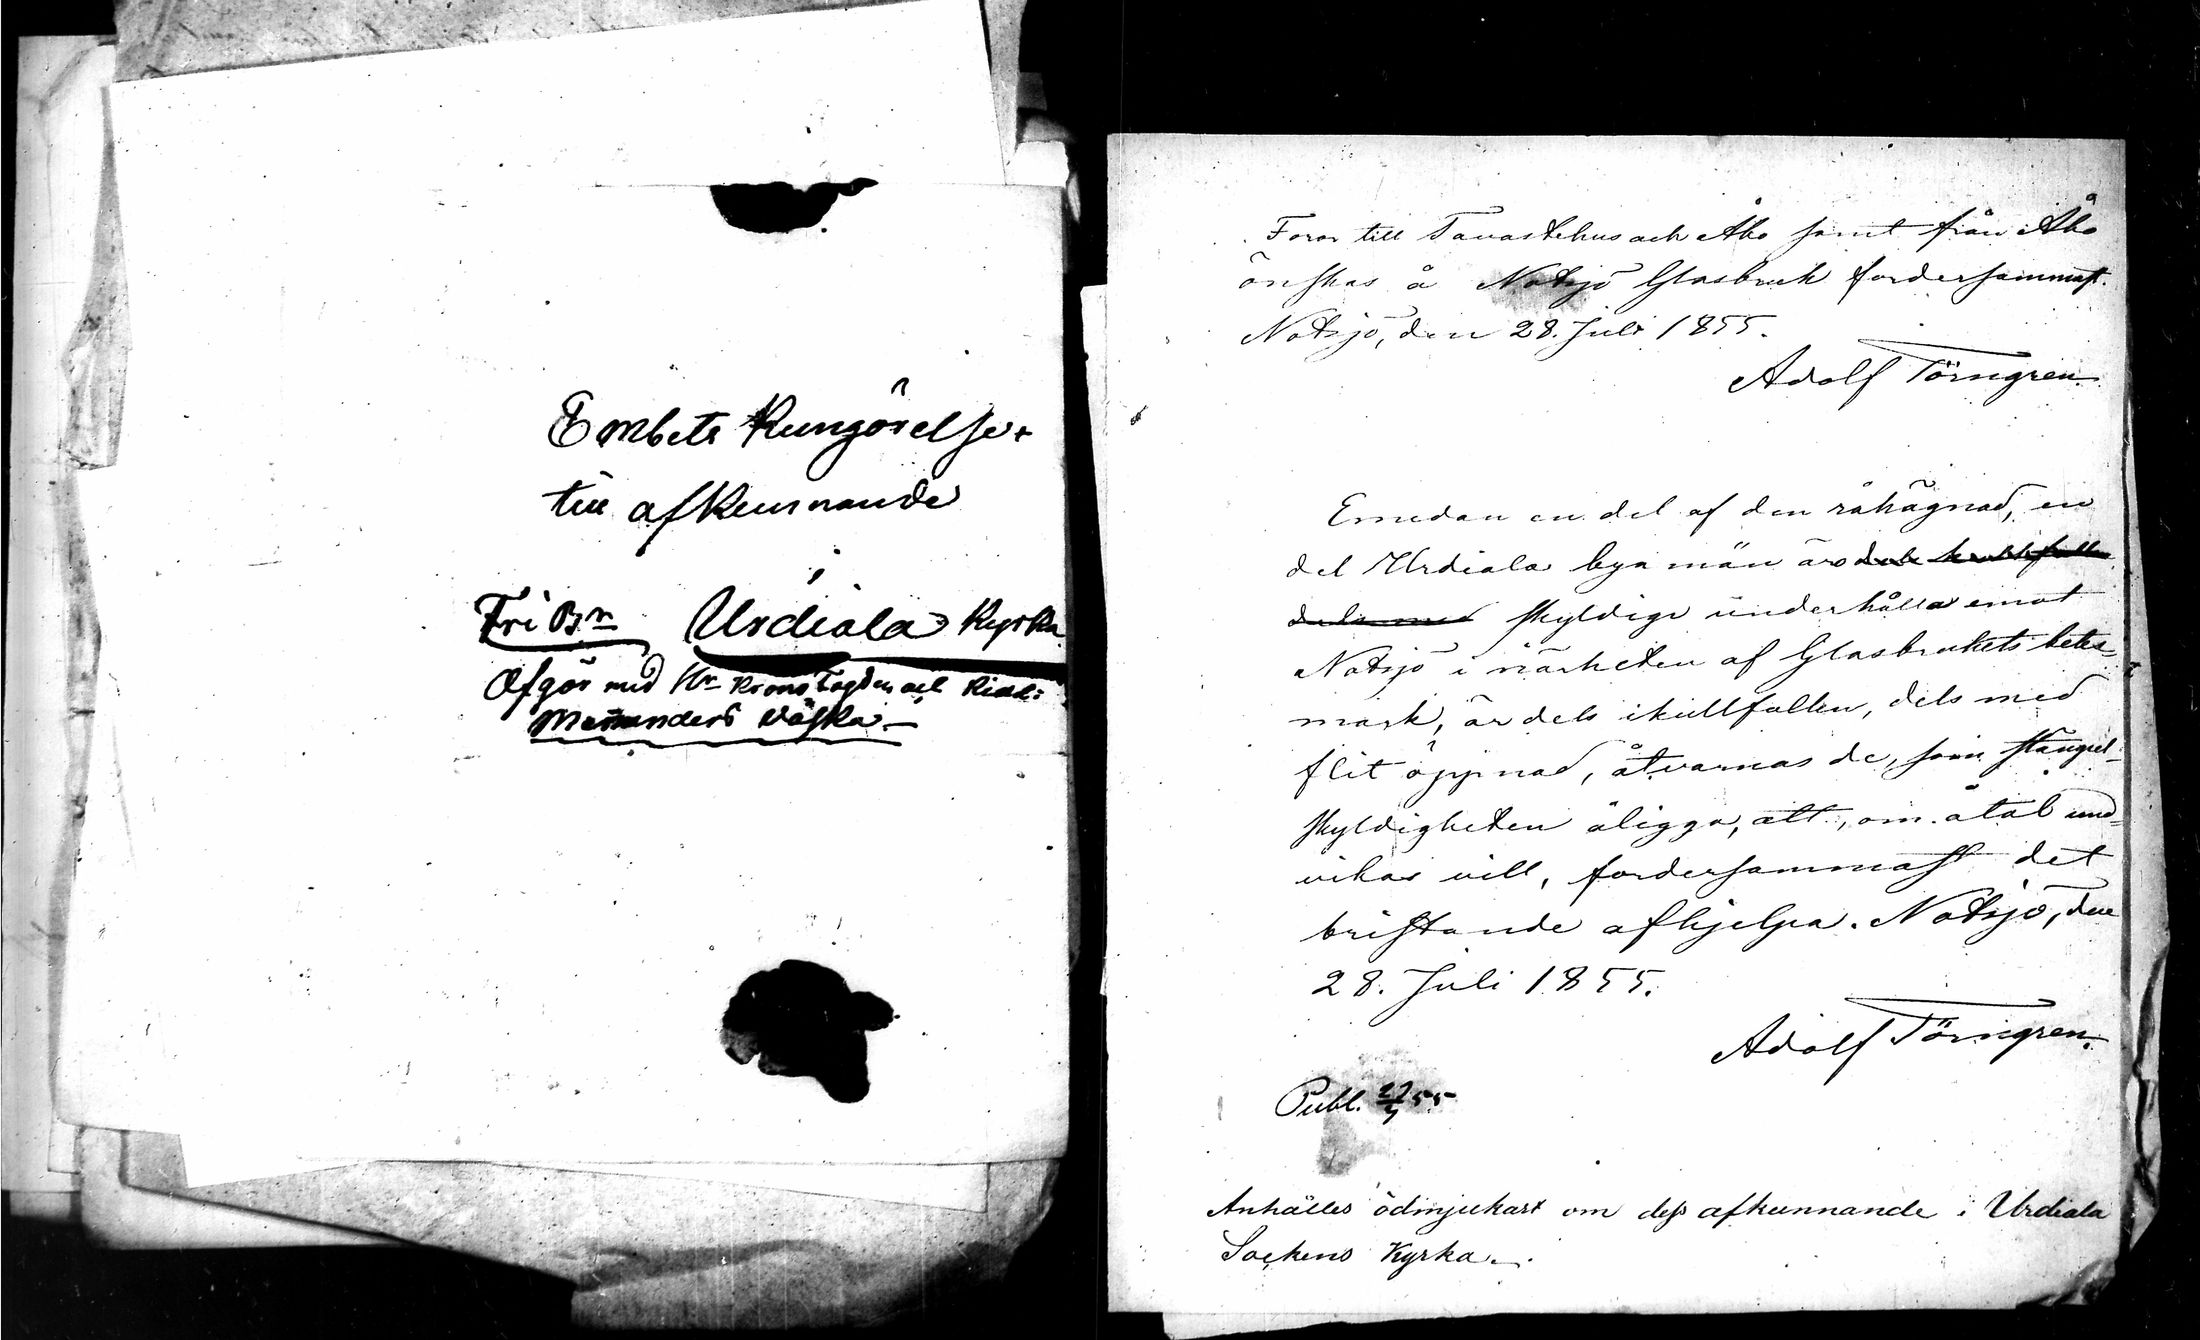 Embets Kungörelser
till afkunnande
i
Fri Br Urdiala Kyrka
Afgör med Hr Krono Fogden och Ridd:
Menanders väska.
Foror till Tavastehus och Åbo samt från Åbo
önskas å Notsjö Glasbruk fordersammast.
Notsjö, den 28. Juli 1855.
Adolf Törngren.
Emedan en del af den råhägnad, en
del Urdiala bya män äro
skyldige underhålla emot
Notsjö i närheten af Glasbrukets betes-
mark, är dels ikullfallen, dels med
flit öppnad, åtvarnas de, som stängsel-
skyldigheten åligga, att, om åtal und-
vikas vill, fordersammast det
bristande afhjelpa. Notsjö, den
28. Juli 1855.
Adolf Törngren.
Publ. 55
Anhålles ödmjukast om dess afkunnande i Urdiala
Sockens Kyrka.